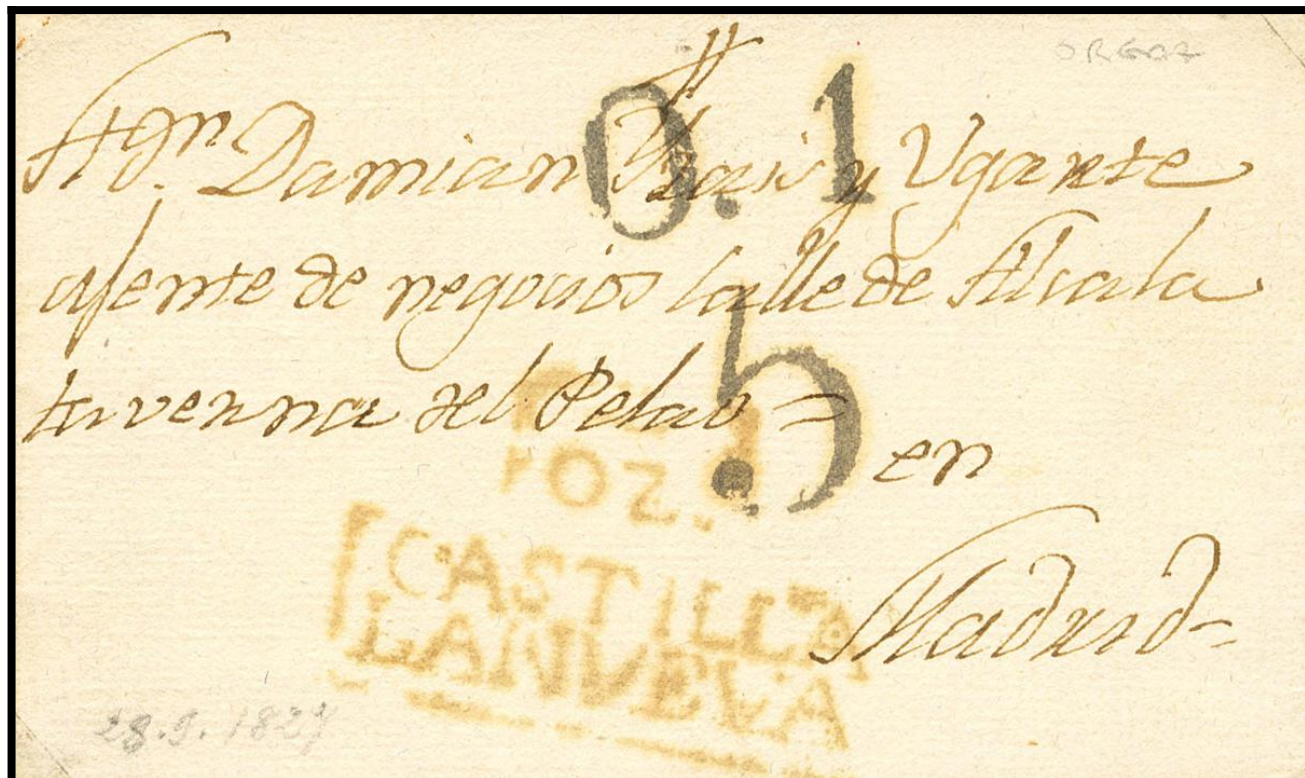 ORGAZ
0. 1
A Dn. Damian y Ugarte
ajente de negocios Calle de Alcala
taverna del Pelao =
5
en
Madrid
OZ.
CASTILLA
LANUEVA
28.9.1827